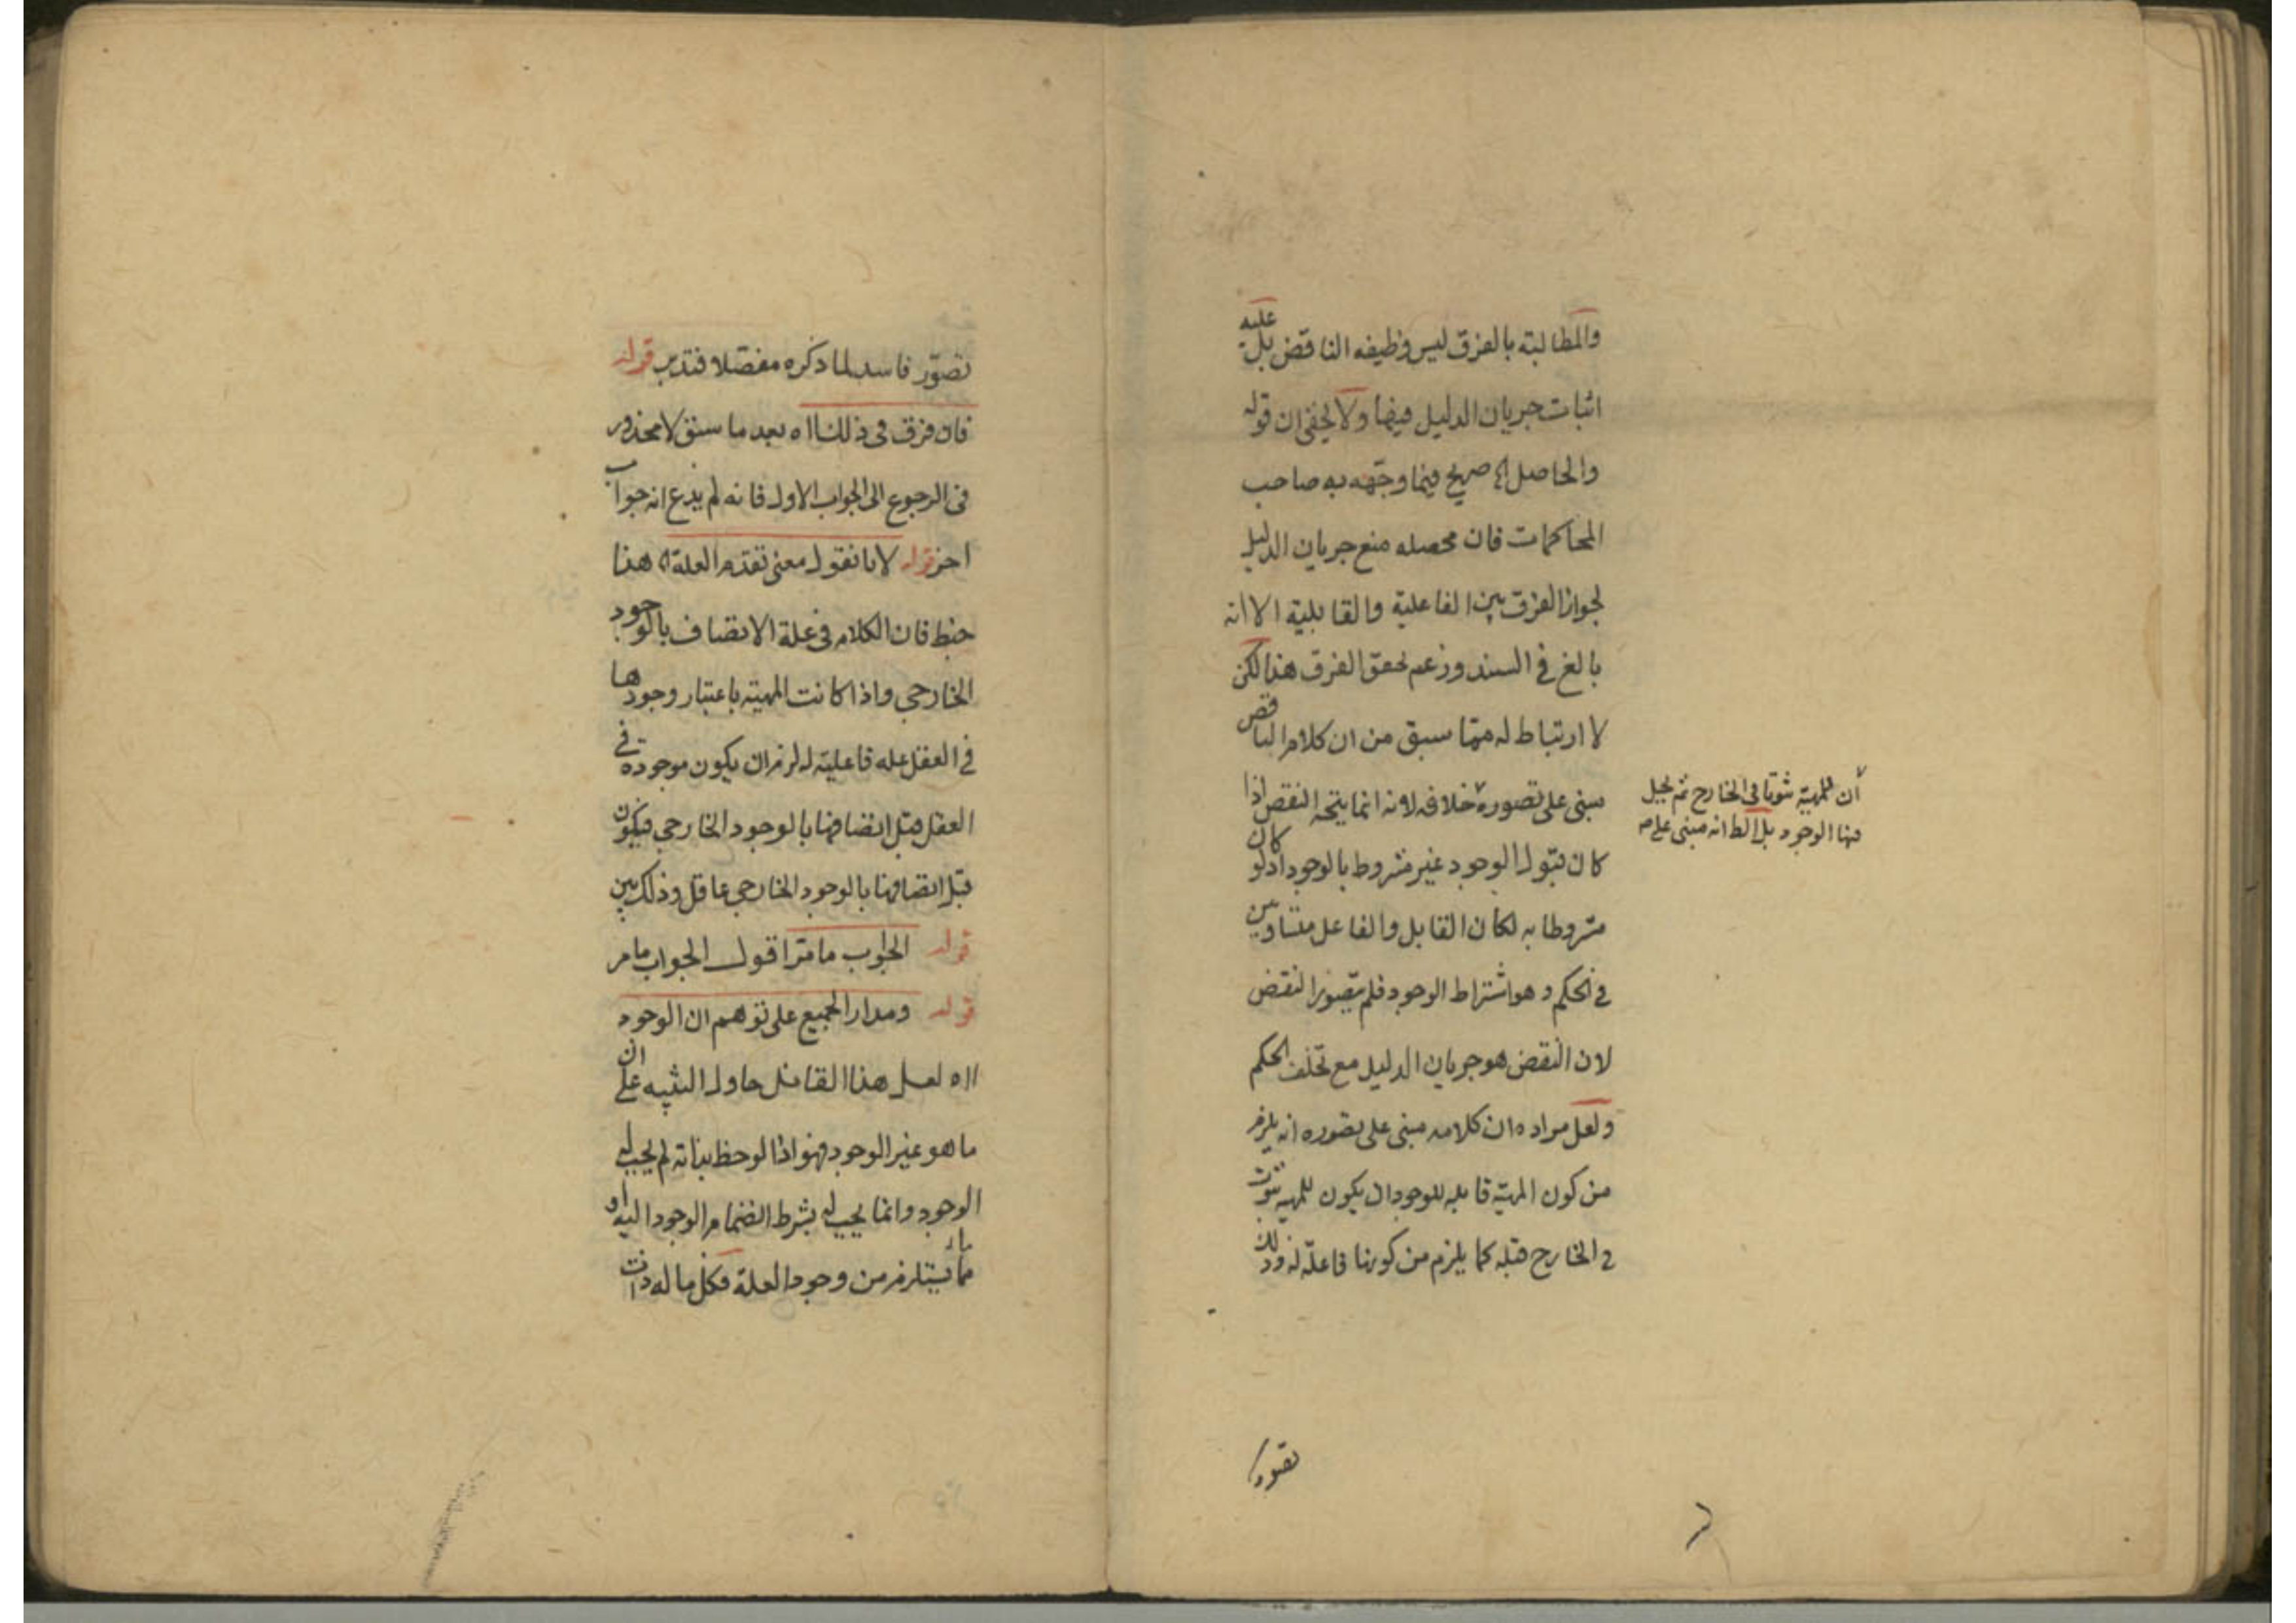 والمطالبة بالفرق ليس وظيفه الناقض بل عليه
اثبات جريان الدليل فيها ولا يخفى ان قوله
والحاصل الخ صريح فيما وجّهه به صاحب
المحاكمات فان محصله منع جريان الدليل
لجواز الفرق بين الفاعلية والقابلية الا انه
بالغ في السند وزعم تحقق الفرق هذا لكن
لا ارتباط له ممّا سبق من ان كلام الناقض
مبنى على تصوره خلافه لانه انما يتجه النقض اذا كان
كان قبول الوجود غير مشروط بالوجود اذ لو
مشروطا به لكان القابل والفاعل متساويين
في الحكم وهو اشتراط الوجود فلم يتصور النقض
لان النقض هو جريان الدليل مع تخلف الحكم
ولعل مراده ان كلامه مبنى على تصوره انه يلزم
من كون المهيّة قابله للوجود ان يكون للمهيه ثبوت
في الخارج قبله كما يلزم من كونها فاعلة له وذلك
أن للمهيّة ثبوتا فى الخارج ثم يحل
فيها الوجود بل الظ انه مبنى على
تصور
تصوّر فاسد لما ذكره مفصّلا فتدبر قوله
فان فرق فى ذلك اه بعد ما سبق لا محذور
فى الرجوع الى الجواب الاول فانه لم يدع انه جواب
اخر قوله لانا نقول معنى تقدم العلة اه هذا
خبط فان الكلام فى علة الاتصاف بالوجود
الخارجى واذا كانت المهيّه باعتبار وجودها
في العقل عله فاعليّة له لزم ان يكون موجوده في
العقل قبل اتصافها بالوجود الخارجى فيكون
قبل اتصافها بالوجود الخارجى عاقل وذلك بين
قوله الجواب ما مرّ اقول الجواب ما مر
قوله ومدار الجميع على توهم ان الوجود
اه لعل هذا القائل حاول التنبيه على ان
ما هو غير الوجود فهو اذا لوحظ بذاته لم يجب له
الوجود وانما يجب له بشرط انضمام الوجود اليه او
ما يستلزم من وجود العلة فكل ما له ذات